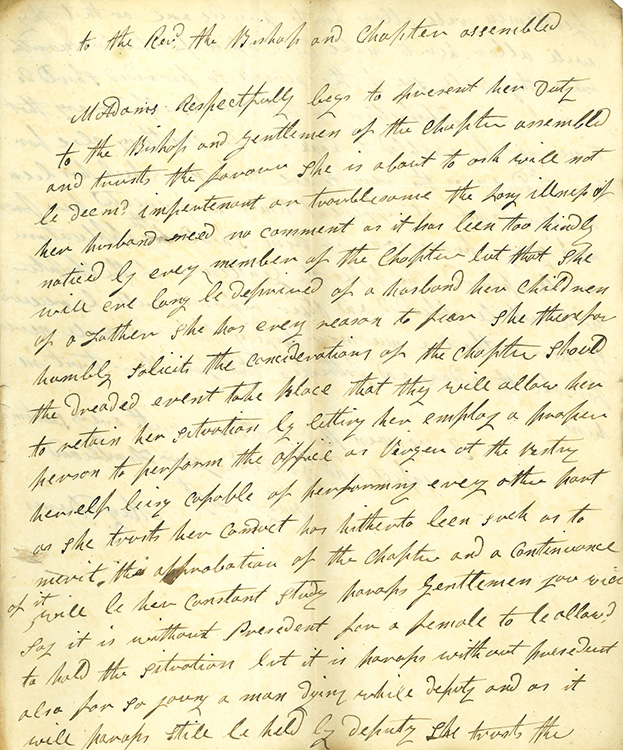 to the Rev.d the Bishop and Chapter assembled
M Adams Respectfully begs to present her Duty
to the Bishop and Gentlemen of the Chapter assembled
and trusts the favour she is about to ask will not
be deem.d impertenant or troublesome the long illness of
her husband need no comment as it has been too kindly
noticed by every member of the Chapter but that she
will ere long be deprived of a husband her Children
of a Father she has every reason to fear she therefor
humbly solicits the considerations of the Chapter should
the dreaded event take place that they will allow her
to retain her situation by letting her employ a proper
person to perform the office as Verger at the vestry
herself being capable of performing every other part
as she trusts her Conduct has hitherto been such as to
merit the approbation of the Chapter and a Continuance
of it will be her Constant study paraps Gentlemen you will
say it is without President for a female to be allow.d
to hold the situation but it is paraps without president
also for so young a man dying while deputy and as it
will paraps still be held by deputy she trusts the